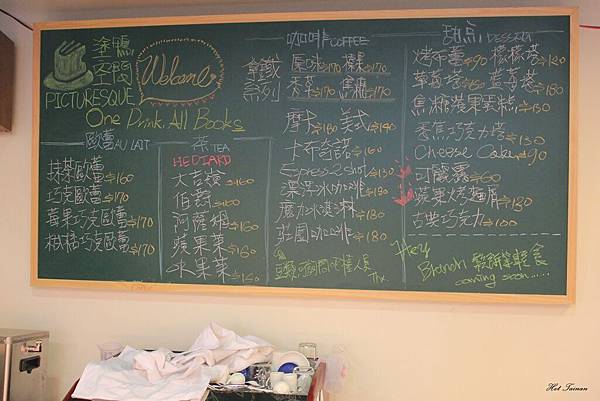 塗鴉
空間
Welcome
PICTURESQUE
One Drink, All Books
歐蕾 AU LAIT
抹茶歐蕾 160
巧克歐蕾 170
莓果巧克歐蕾 170
柑橘巧克歐蕾 170
茶 TEA
HEDIARD
大吉嶺 160
伯爵 160
阿薩姆 160
蘋果茶 160
水果茶 160
咖啡 COFFEE
拿鐵系列
原味 170 榛果 170
香草 170 焦糖 170
摩卡 180 美式 140
卡布奇諾 160
Espresso 2 shot 130
漂浮冰咖啡 190
魔力冰淇淋 180
莊園咖啡 180
豆類可詢問吧檯人員
Thx.
甜点 DESSERTS
烤布蕾 90 檸檬塔 120
草莓塔 150 藍莓塔 180
焦糖蘋果蛋糕 150
香蕉巧克力塔 130
Cheese Cake 90
可麗露 60
蘋果烤麵屑 130
古典巧克力 100
Hey
Brunch 鬆餅菜輕食
coming soon......
Hot Tainan